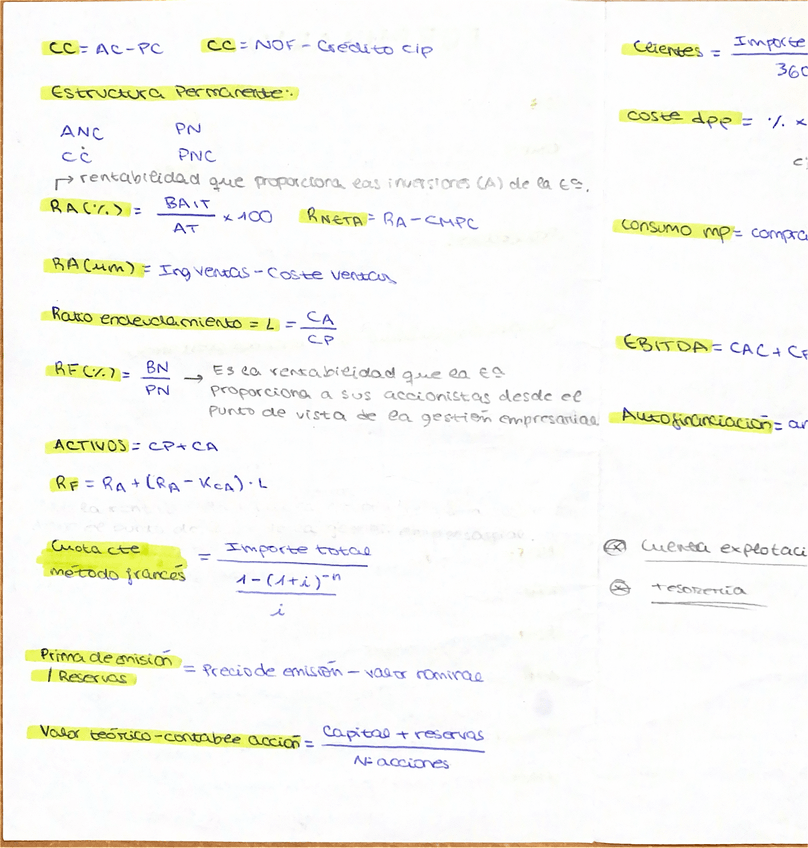 CC = AC - PC   CC = NOF - Crédito c/p
Estructura Permanente:
ANC   PN
CC   PNC
↱ rentabilidad que proporciona las inversiones (A) de la Eª.
RA (%) = BAIT / AT x 100   RNETA = RA - CMPC
RA (um) = Ing ventas - Coste ventas
Ratio endeudamiento = L = CA / CP
RF (%) = BN / PN → Es la rentabilidad que la Eª
proporciona a sus accionistas desde el
punto de vista de la gestión empresarial
ACTIVOS = CP + CA
RF = RA + (RA - KCA) · L
Cuota cte
método francés = Importe total / (1 - (1+i)⁻ⁿ / i)
Prima de emisión
/ Reservas = Precio de emisión - valor nominal
Valor teórico-contable acción = Capital + reservas / Nº acciones
Clientes = Importe
360
Coste dpp = % x
consumo mp = compra
EBITDA = CAC + CF
Autofinanciación = am
⊗ Cuenta explotaci
⊗ tesorería